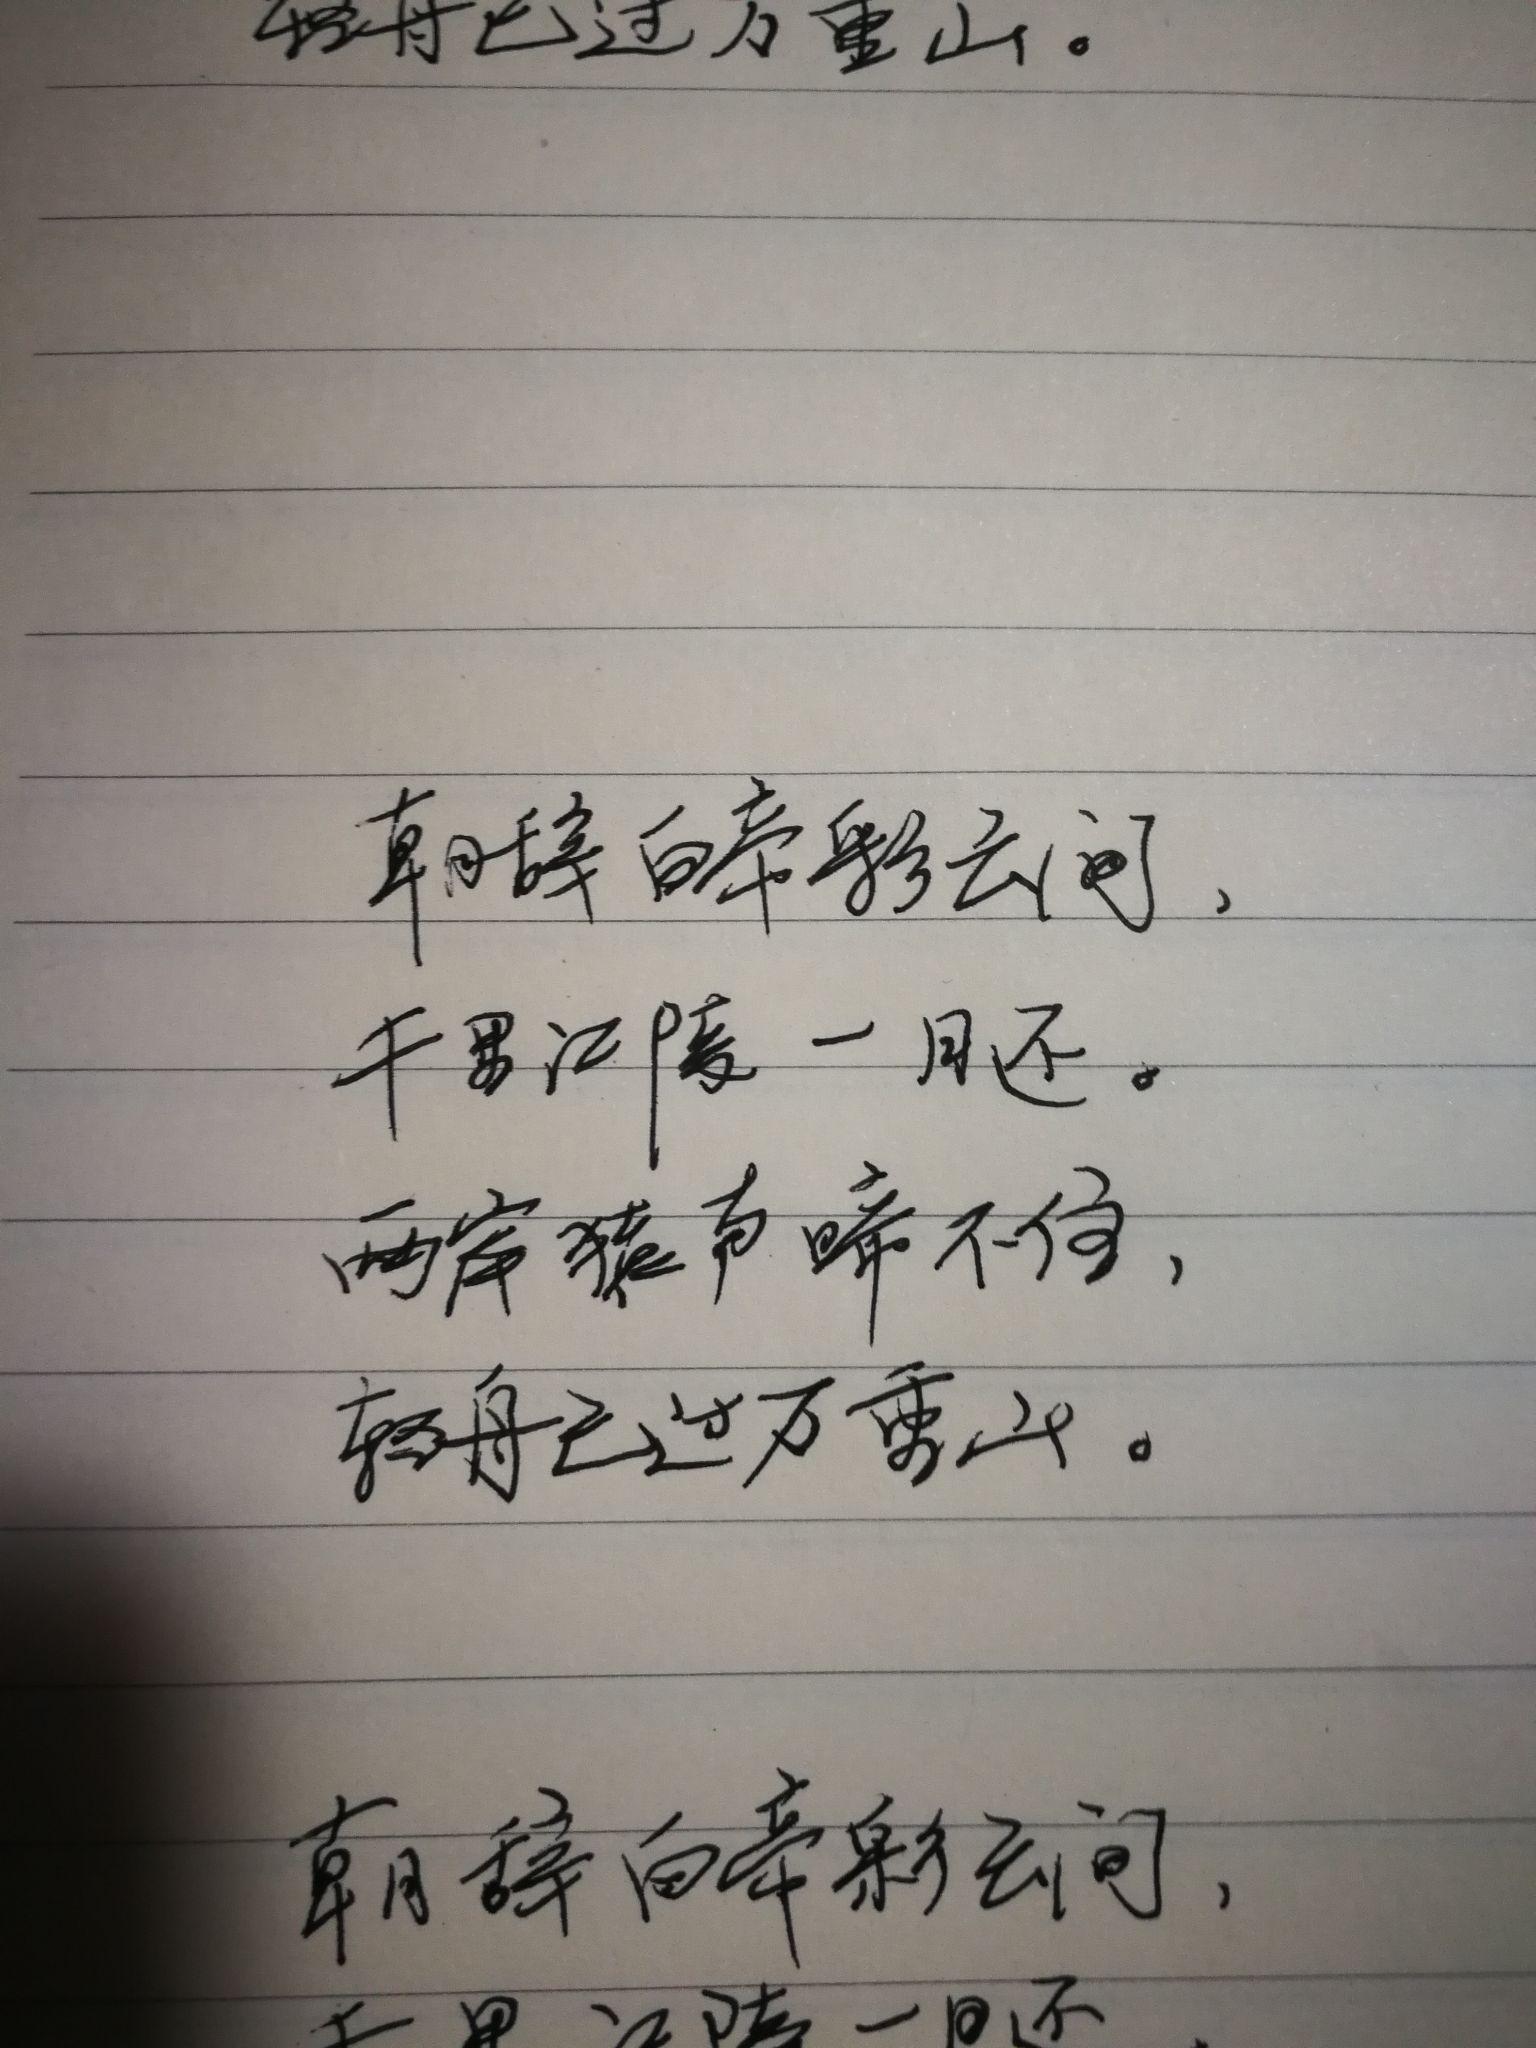 轻舟已过万重山。
朝辞白帝彩云间，
千里江陵一日还。
两岸猿声啼不住，
轻舟已过万重山。
朝辞白帝彩云间，
千里江陵一日还